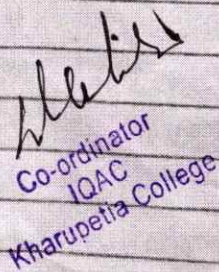 Co-ordinator
IQAC
Kharupetia College